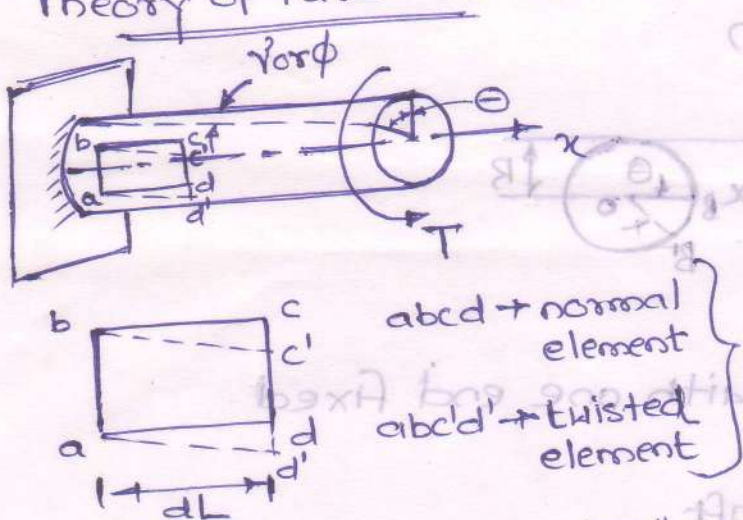 Theory of
γ or φ
Θ
x
b
a
d
d'
T
b
c
c'
a
d
d'
dL
abcd → normal
element
abc'd' → twisted
element